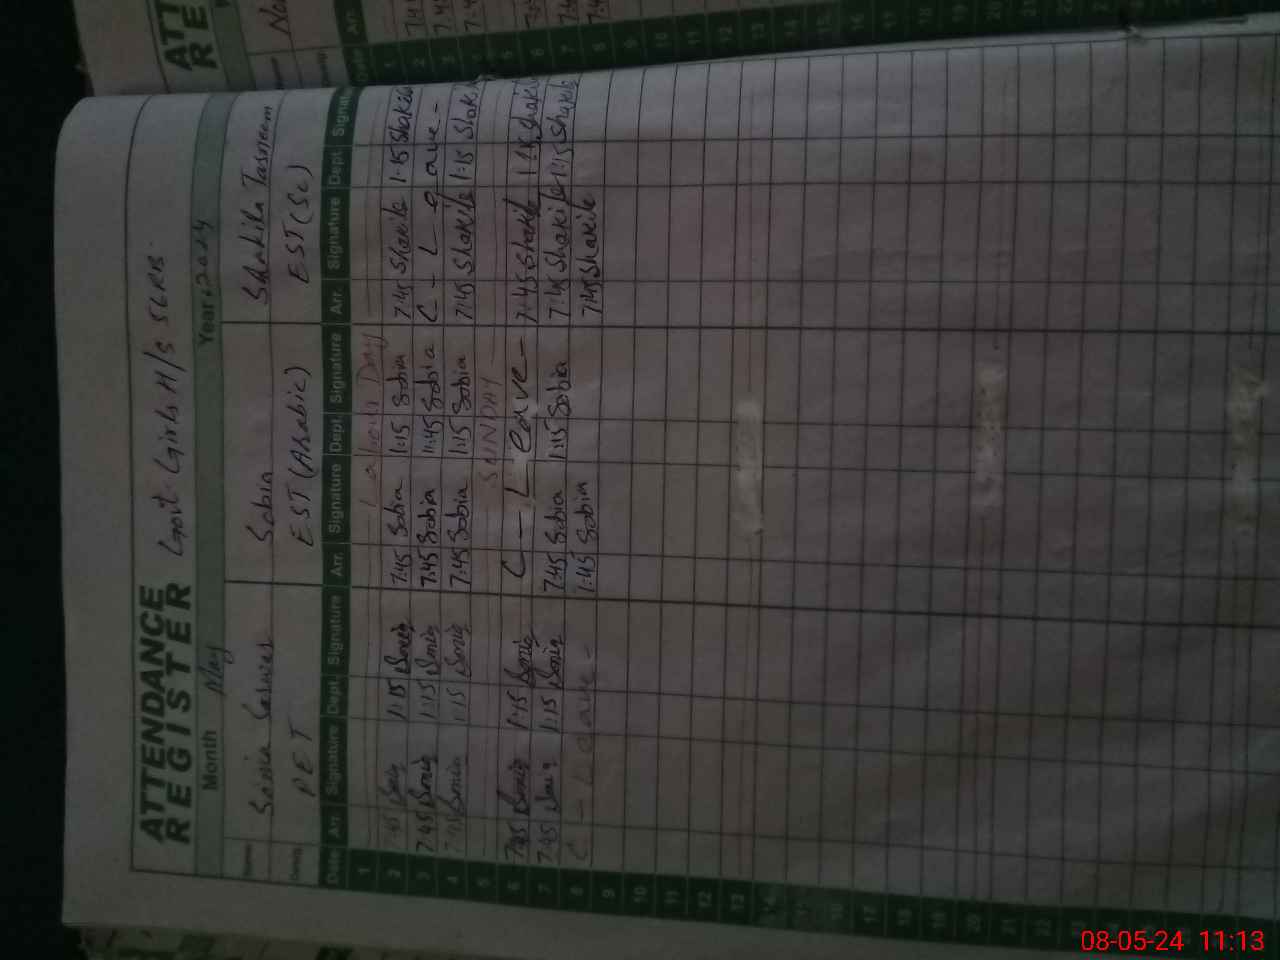 ATTENDANCE
REGISTER Govt. Girls H/S
Month May Year: 2024
Sonia Sarwar Sobia Shahila Tasneem
PET EST (Arabic) EST (Sc)
Date Arr. Signature Dept. Signature Arr. Signature Dept. Signature Arr. Signature Dept. Signature
1 Labour Day
2 7:45 Sonia 1:15 Sonia 7:45 Sobia 1:15 Sobia 7:45 Shakila 1:15 Shakila
3 7:45 Sonia 1:15 Sonia 7:45 Sobia 11:45 Sobia C - Leave -
4 7:45 Sonia 1:15 Sonia 7:45 Sobia 1:15 Sobia 7:45 Shakila 1:15 Shakila
5 SUNDAY
6 7:45 Sonia 1:15 Sonia C - Leave - 7:45 Shakila 1:15 Shakila
7 7:45 Sonia 1:15 Sonia 7:45 Sobia 1:15 Sobia 7:45 Shakila 1:15 Shakila
8 C - Leave - 7:45 Sobia 7:45 Shakila
9
10
11
12
13
14
15
16
17
18
19
20
21
22
08-05-24 11:13